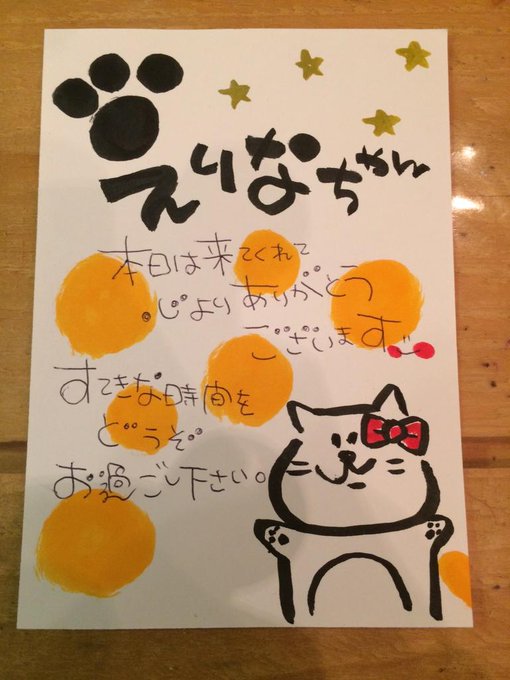 えりなちゃん
本日は来てくれて
心よりありがとう
ございます
すてきな時間を
どうぞ
お過ごし下さい。